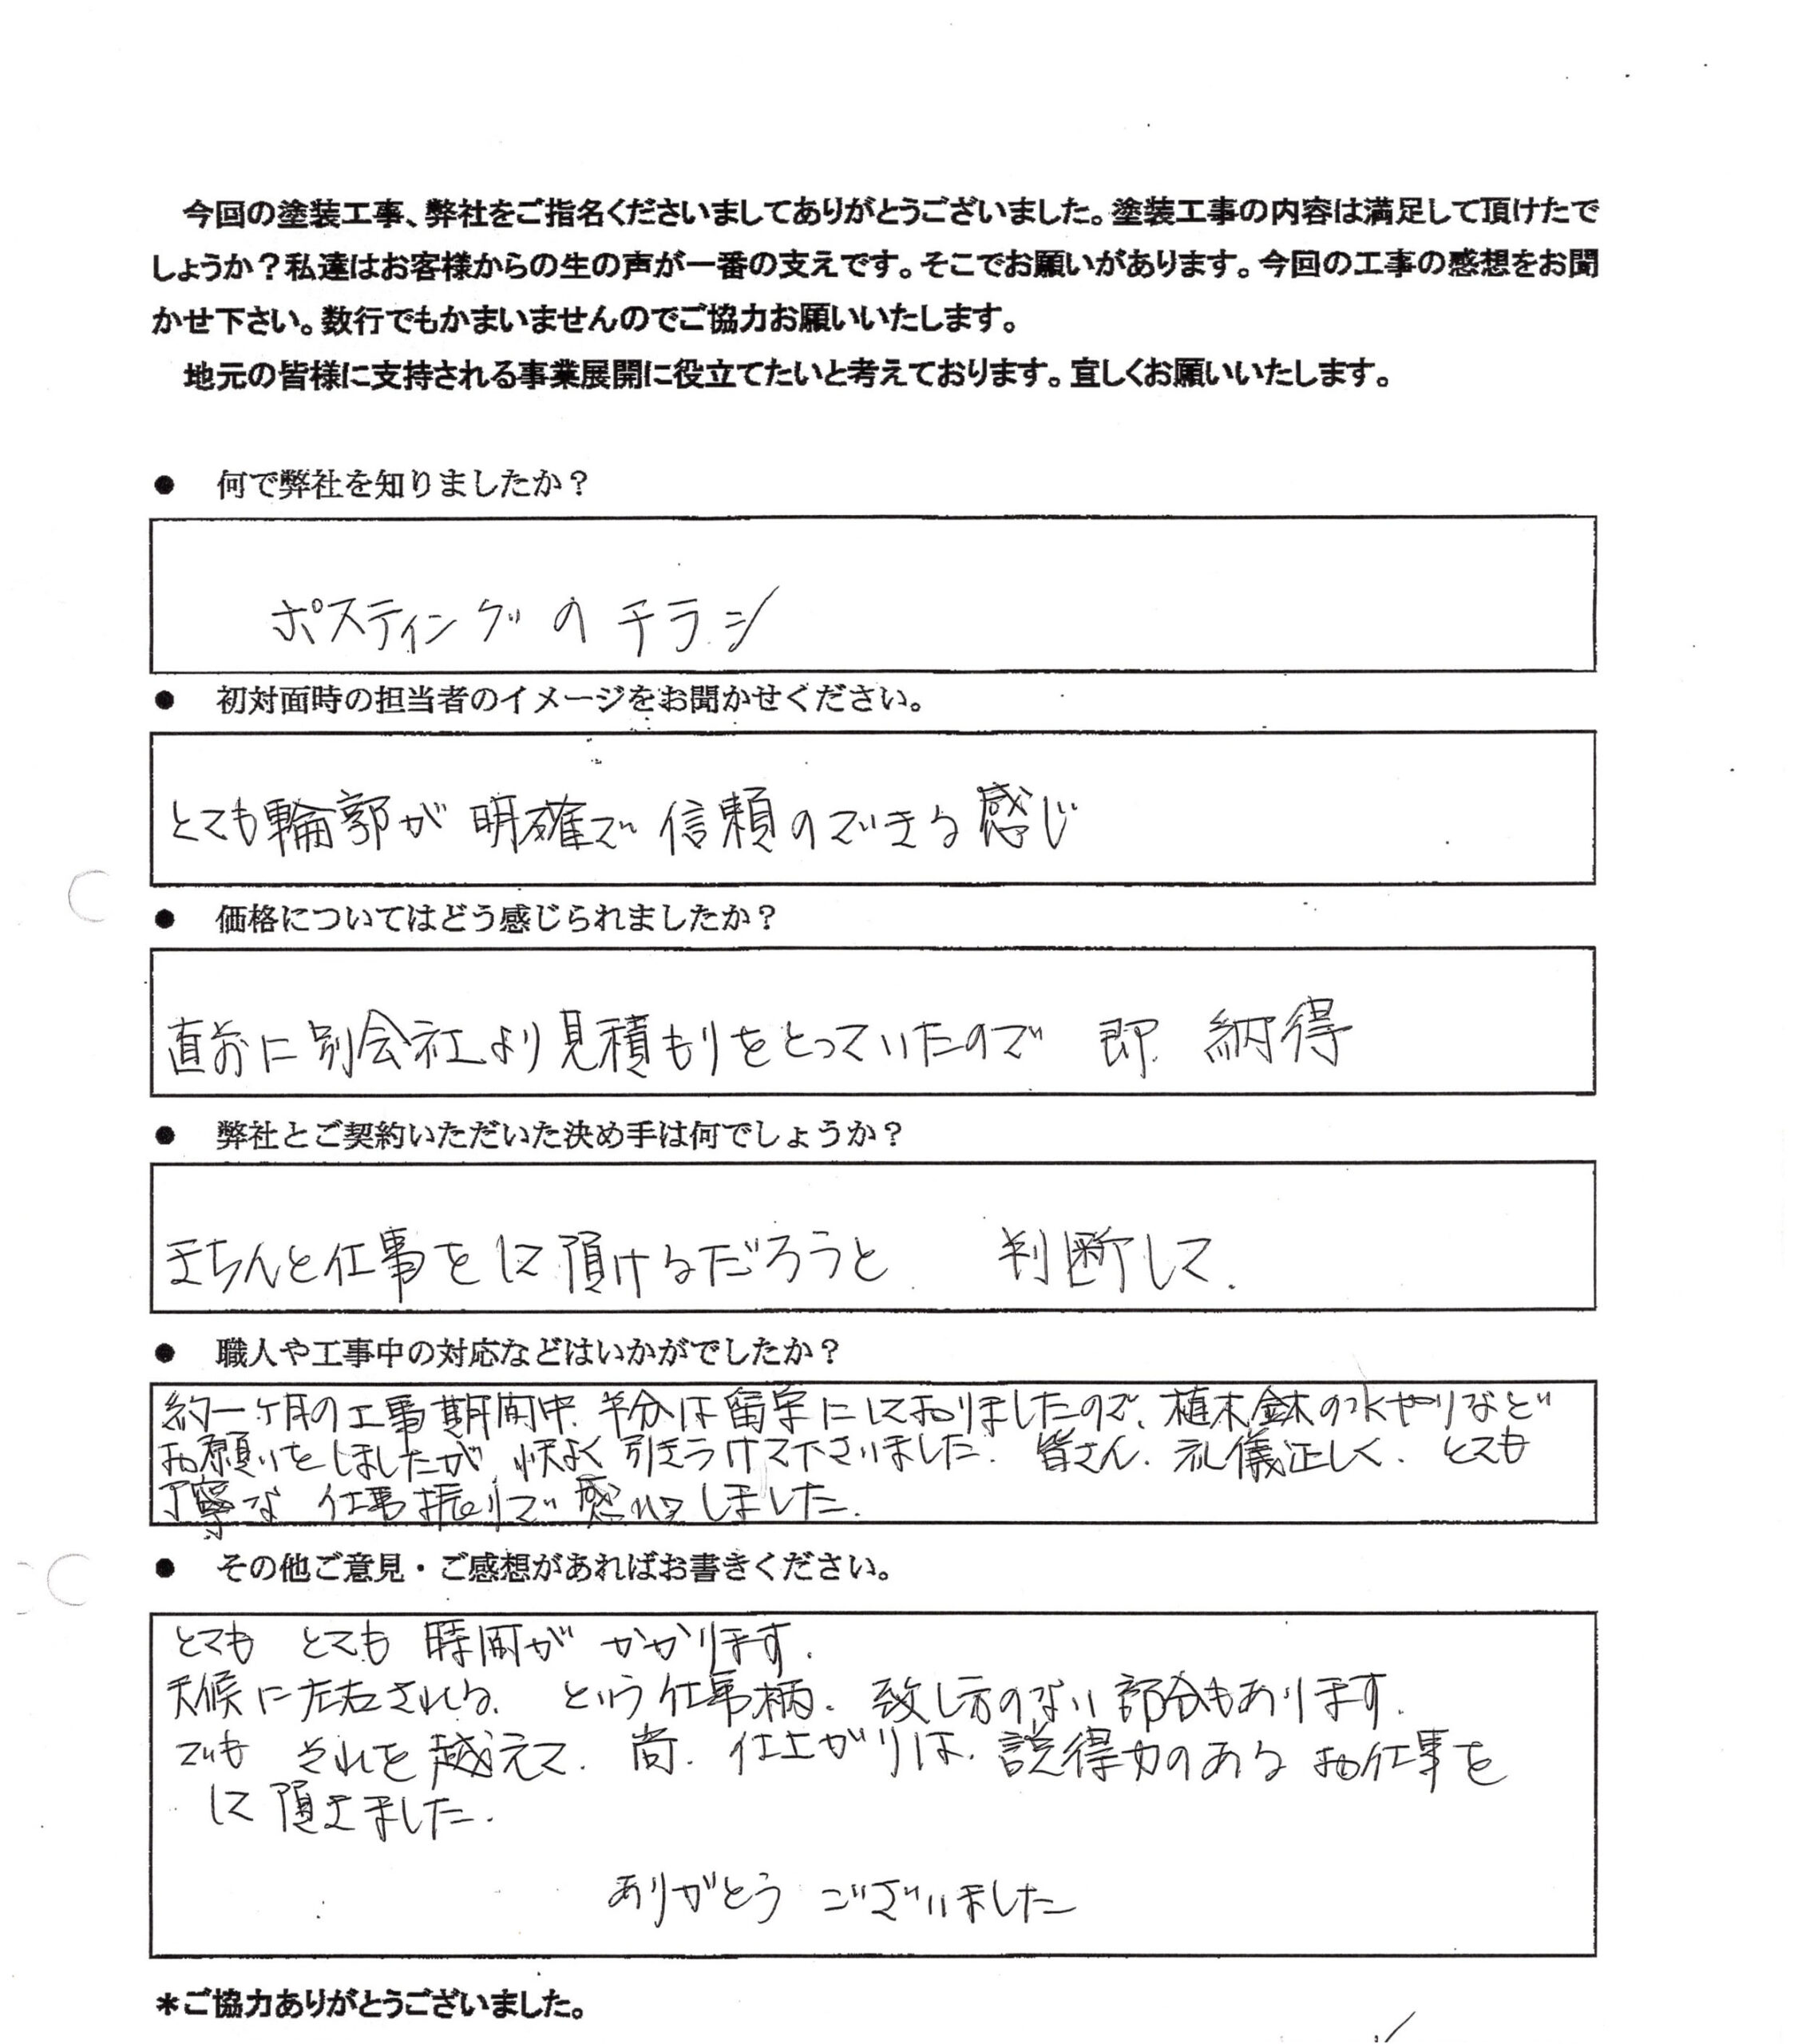 今回の塗装工事、弊社をご指名くださいましてありがとうございました。塗装工事の内容は満足して頂けたで
しょうか？私達はお客様からの生の声が一番の支えです。そこでお願いがあります。今回の工事の感想をお聞
かせ下さい。数行でもかまいませんのでご協力お願いいたします。
地元の皆様に支持される事業展開に役立てたいと考えております。宜しくお願いいたします。
● 何で弊社を知りましたか？
ポスティングのチラシ
● 初対面時の担当者のイメージをお聞かせください。
とても輪郭が明確で信頼のできる感じ
● 価格についてはどう感じられましたか？
直前に別会社より見積もりをとっていたので 即 納得
● 弊社とご契約いただいた決め手は何でしょうか？
きちんと仕事をして頂けるだろうと 判断して.
● 職人や工事中の対応などはいかがでしたか？
約一ヶ月の工事期間中、半分は留守にしておりましたので、植木鉢の水やりなど
お願いをしましたが、快よく引きうけて下さいました. 皆さん、礼儀正しく、とても
丁寧な 仕事振りで 感心しました.
● その他ご意見・ご感想があればお書きください。
とても とても 時間が かかります.
天候に左右される、という仕事柄、致し方のない部分もあります.
でも それを越えて、尚、仕上がりは、説得力のある お仕事を
して頂きました.
ありがとう ございました
＊ご協力ありがとうございました。